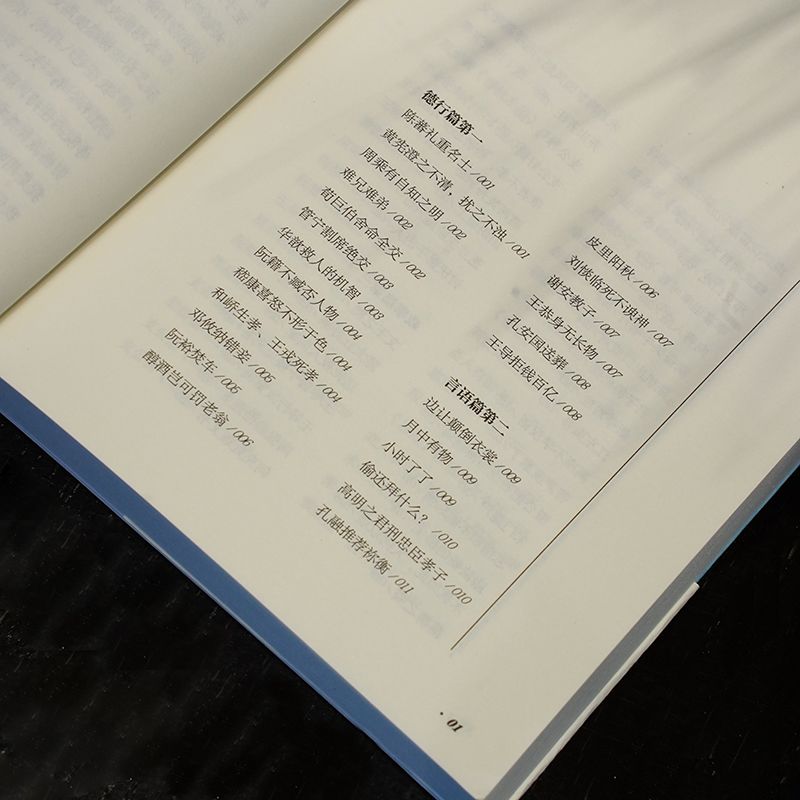 德行篇第一
陈蕃礼重名士 /001
黄宪澄之不清，扰之不浊 /001
周乘有自知之明 /002
难兄难弟 /002
荀巨伯舍命全交 /002
管宁割席绝交 /003
华歆救人的机智 /003
阮籍不臧否人物 /004
嵇康喜怒不形于色 /004
和峤生孝、王戎死孝 /004
邓攸纳错妾 /005
阮裕焚车 /005
醇酒岂可罚老翁 /006
皮里阳秋 /006
刘惔临死不谀神 /007
谢安教子 /007
王恭身无长物 /007
孔安国送葬 /008
王导拒钱百亿 /008
言语篇第二
边让颠倒衣裳 /009
月中有物 /009
小时了了 /009
偷还拜什么？ /010
高明之君刑忠臣孝子 /010
孔融推荐祢衡 /011
· 01